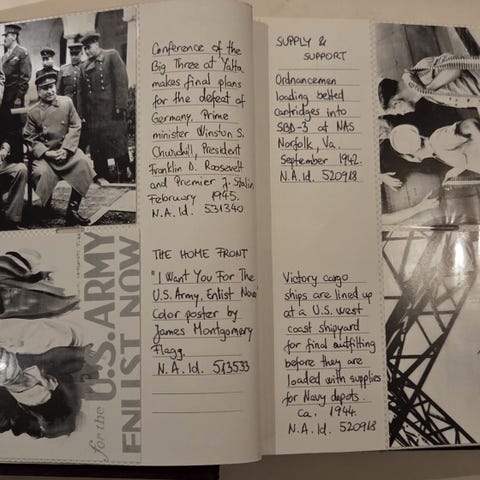 Conference of the
Big Three at Yalta
makes final plans
for the defeat of
Germany. Prime
minister Winston S.
Churchill, President
Franklin D. Roosevelt
and Premier J. Stalin
February 1945.
N.A. Id. 531340
for the U.S. ARMY
ENLIST NOW
THE HOME FRONT
"I Want You For The
U.S. Army. Enlist Now"
Color poster by
James Montgomery
Flagg.
N.A. Id. 513533
SUPPLY &
SUPPORT
Ordnancemen
loading belted
cartridges into
SBD-3 at NAS
Norfolk, Va.
September 1942.
N.A. Id. 520918
Victory cargo
ships are lined up
at a U.S. west
coast shipyard
for final outfitting
before they are
loaded with supplies
for Navy depots.
Ca. 1944.
N.A. Id. 520918